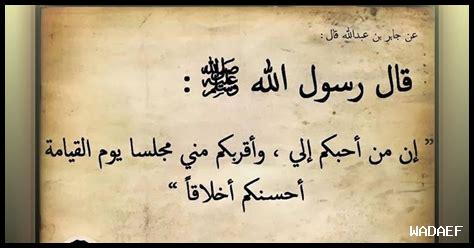 عن جابر بن عبدالله قال :
قال رسول الله ﷺ :
" إن من أحبكم إلي ، وأقربكم مني مجلسا يوم القيامة
أحسنكم أخلاقاً "
WADAEF